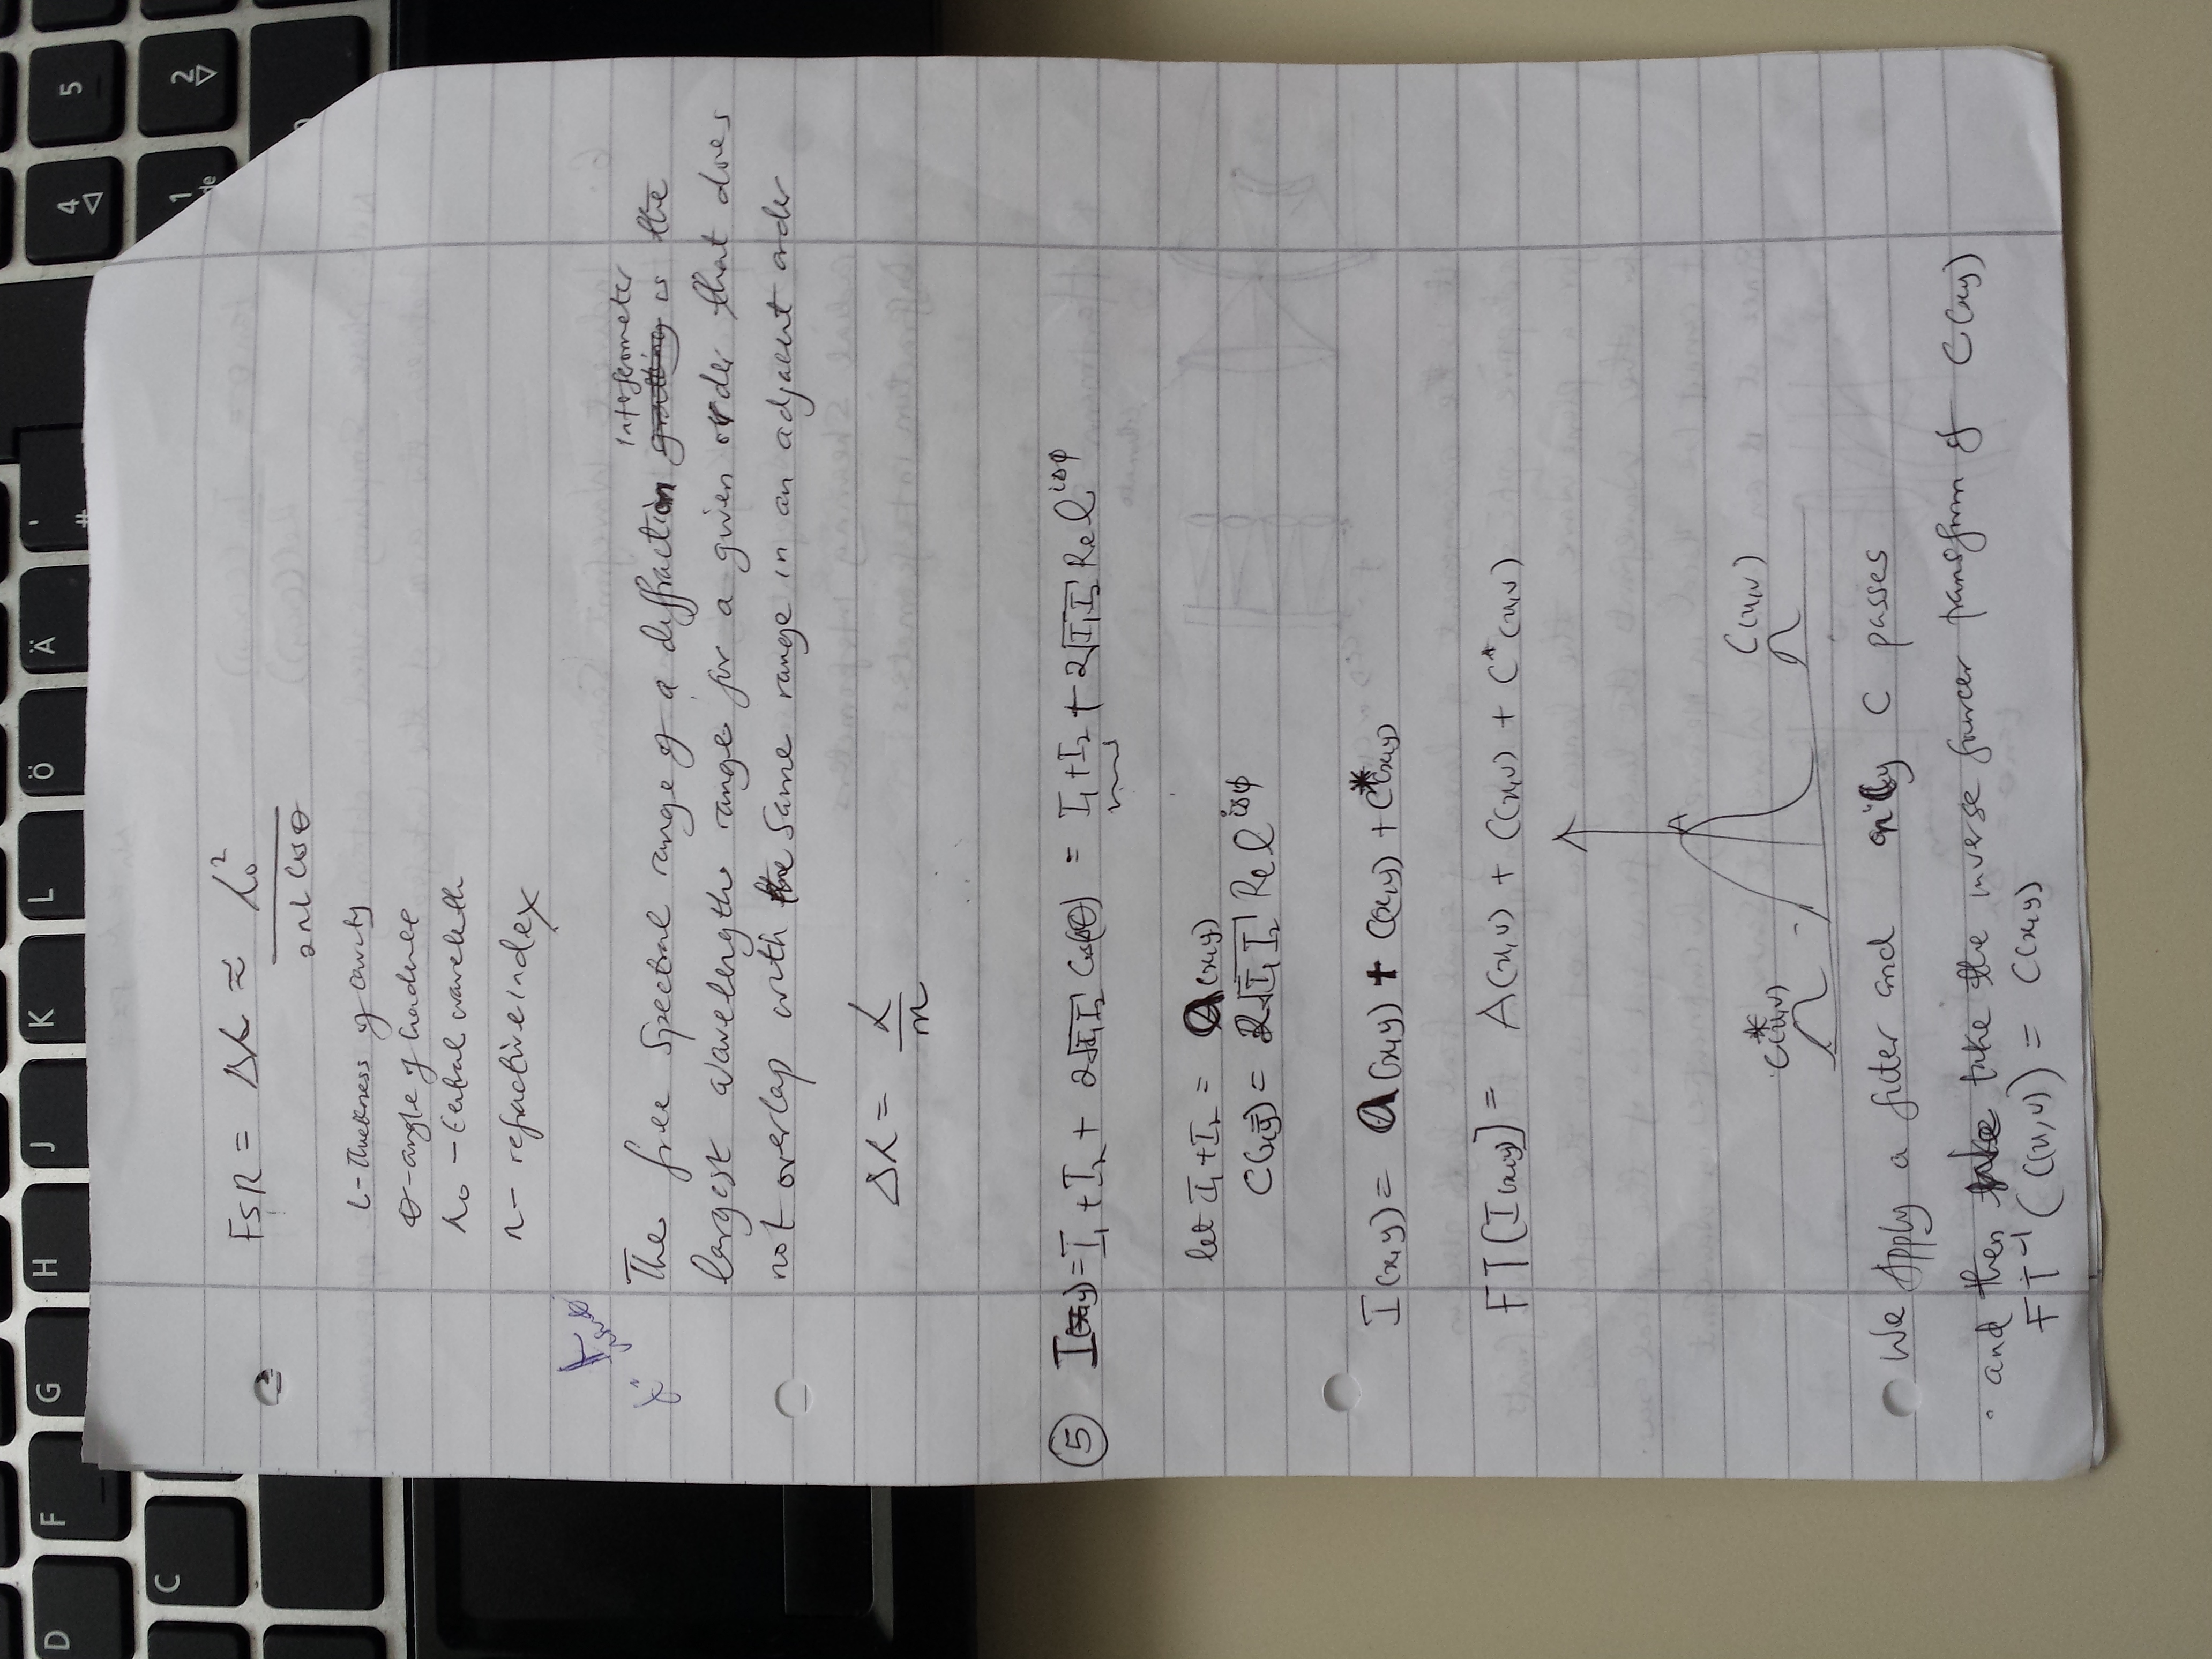 FSR = Δλ ≈ λ₀² / 2nl cosθ
l - thickness of cavity
θ - angle of incidence
λ₀ - central wavelength
n - refractive index
interferometer
The free spectral range of a diffraction grating is the
largest wavelength range for a given order that does
not overlap with the same range in an adjacent order
Δλ = λ / m
⑤ I(x,y) = I₁ + I₂ + 2√I₁I₂ cos(θ) = I₁ + I₂ + 2√I₁I₂ Re e^iδφ
let I₁ + I₂ = a(x,y)
C(x,y) = 2√I₁I₂ Re e^iδφ
I(x,y) = a(x,y) + C(x,y) + C*(x,y)
FT[I(x,y)] = A(u,v) + C(u,v) + C*(u,v)
C*(u,v)
C(u,v)
We Apply a filter and only C passes
and then take the inverse fourier transform of C(x,y)
FT⁻¹(C(u,v)) = C(x,y)
D
F
G
H
J
K
L
Ö
Ä
'
#
C
4
5
1
2